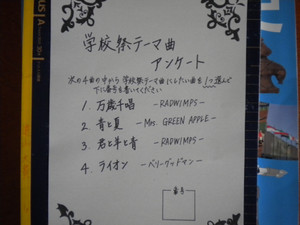 学校祭テーマ曲
アンケート
次の4曲の中から学校祭テーマ曲にしたい曲を1つ選んで
下に番号を書いてください
1. 万歳千唱 -RADWIMPS-
2. 青と夏 -Mrs. GREEN APPLE-
3. 君と羊と青 -RADWIMPS-
4. ライオン -ベリーグッドマン-
番号